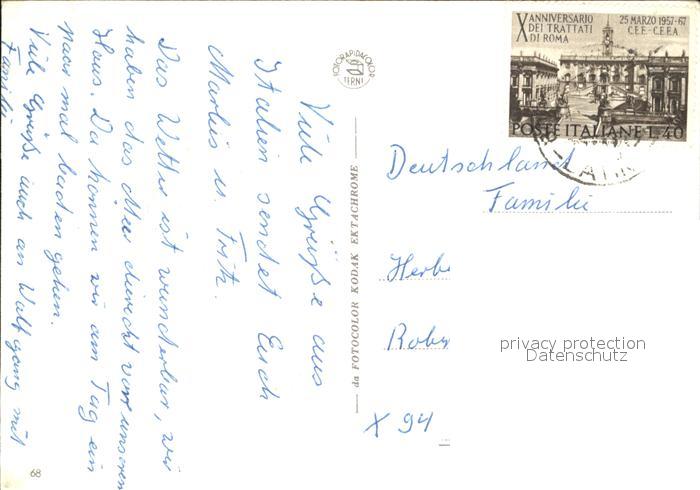 Viele Grüße aus
Italien sendet Euch
Marlies u. Fritz.
Das Wetter ist wunderbar, wir
haben das Meer direckt vor unseren
Haus. Da können wir am Tag ein
paar mal baden gehen.
Viele Grüße auch an Wolfgang mit
Familie
68
FOTORAPIDACOLOR
TERNI
da FOTOCOLOR KODAK EKTACHROME
X ANNIVERSARIO
DEI TRATTATI
DI ROMA
25 MARZO 1957-67
C.E.E.-C.E.E.A
POSTE ITALIANE L. 40
Deutschland
Familie
Herbe
Rober
X 94
privacy protection
Datenschutz